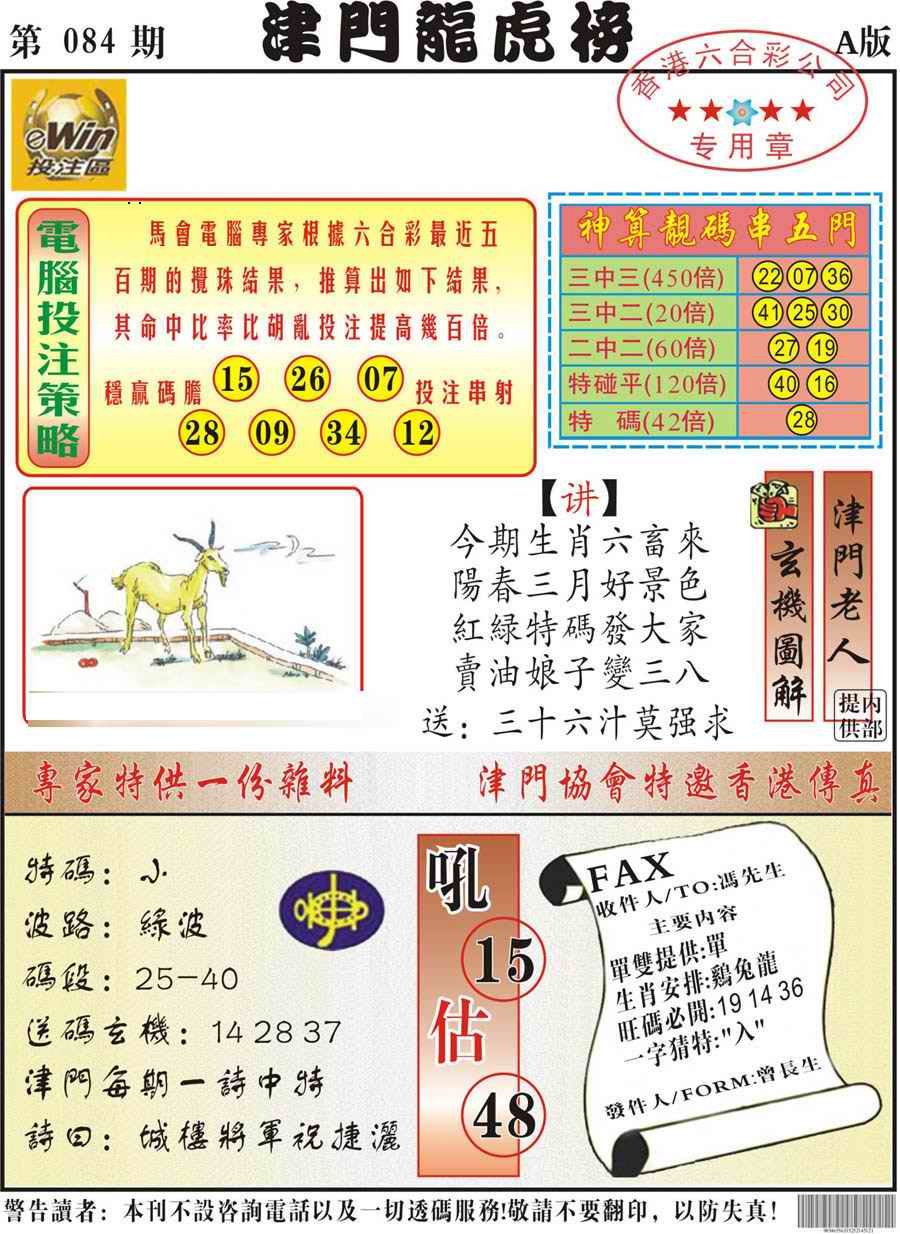 第 084 期
津門龍虎榜
A版
香港六合彩公司
专用章
eWin
投注區
電腦投注策略
馬會電腦專家根據六合彩最近五
百期的攪珠結果，推算出如下結果，
其命中比率比胡亂投注提高幾百倍。
穩贏碼膽 15 26 07 投注串射
28 09 34 12
神算靚碼串五門
三中三(450倍) 22 07 36
三中二(20倍) 41 25 30
二中二(60倍) 27 19
特碰平(120倍) 40 16
特 碼(42倍) 28
【讲】
今期生肖六畜來
陽春三月好景色
紅緑特碼發大家
賣油娘子變三八
送：三十六汁莫强求
玄機圖解
津門老人
内部提供
專家特供一份雜料
津門協會特邀香港傳真
特碼：小
波路：綠波
碼段：25-40
送碼玄機：14 28 37
津門每期一詩中特
詩曰：城樓將軍祝捷灑
吼
15
估
48
FAX
收件人/TO:馮先生
主要内容
單雙提供:單
生肖安排:鷄兔龍
旺碼必開:19 14 36
一字猜特:"入"
發件人/FORM:曾長生
警告讀者：本刊不設咨詢電話以及一切透碼服務!敬請不要翻印，以防失真！